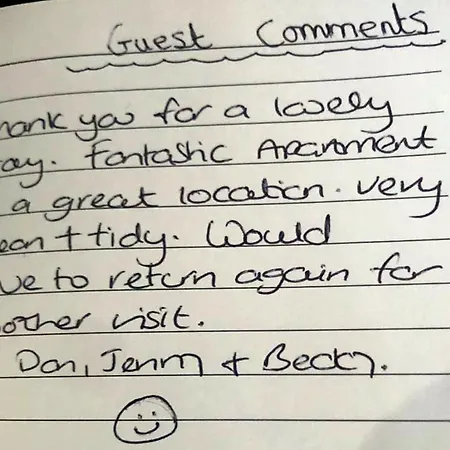 Guest Comments
hank you for a lovely
ay. Fantastic Apartment
a great location. very
ean + tidy. Would
ve to return again for
other visit.
Dan, Jenny + Becky.